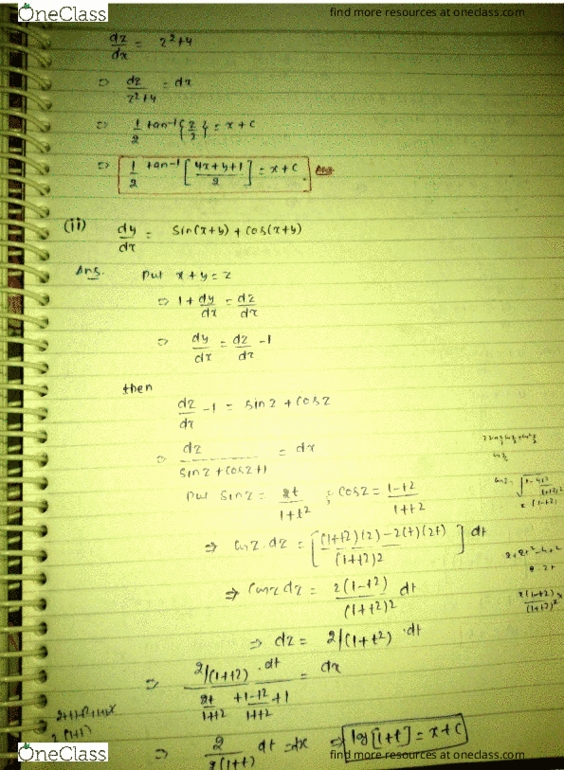 OneClass
find more resources at oneclass.com
dz/dx = z²+4
⇒ dz/z²+4 = dx
⇒ 1/2 tan⁻¹{z/2} = x+c
⇒ 1/2 tan⁻¹[4x+y+1/2] = x+c Ans
(ii) dy/dx = sin(x+y) + cos(x+y)
Ans. Put x+y=z
⇒ 1+dy/dx = dz/dx
⇒ dy/dx = dz/dx -1
then
dz/dx -1 = sinz + cosz
⇒ dz/sinz+cosz+1 = dx
Put sinz = 2t/1+t² ; cosz = 1-t2/1+t2
⇒ cosz.dz = [(1+t2)(2)-2(t)(2t)/(1+t2)2] dt
⇒ cosz dz = 2(1-t2)/(1+t2)2 dt
⇒ dz = 2/(1+t²) .dt
⇒ 2/(1+t2) .dt/2t/1+t2 + 1-t2/1+t2 +1 = dx
⇒ 2/2(1+t) dt = dx ⇒ log[1+t] = x+c
OneClass
find more resources at oneclass.com